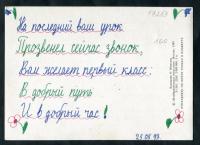 На последний ваш урок
Прозвенел сейчас звонок,
Вам желает первый класс:
В добрый путь
И в добрый час!
25.05.93.